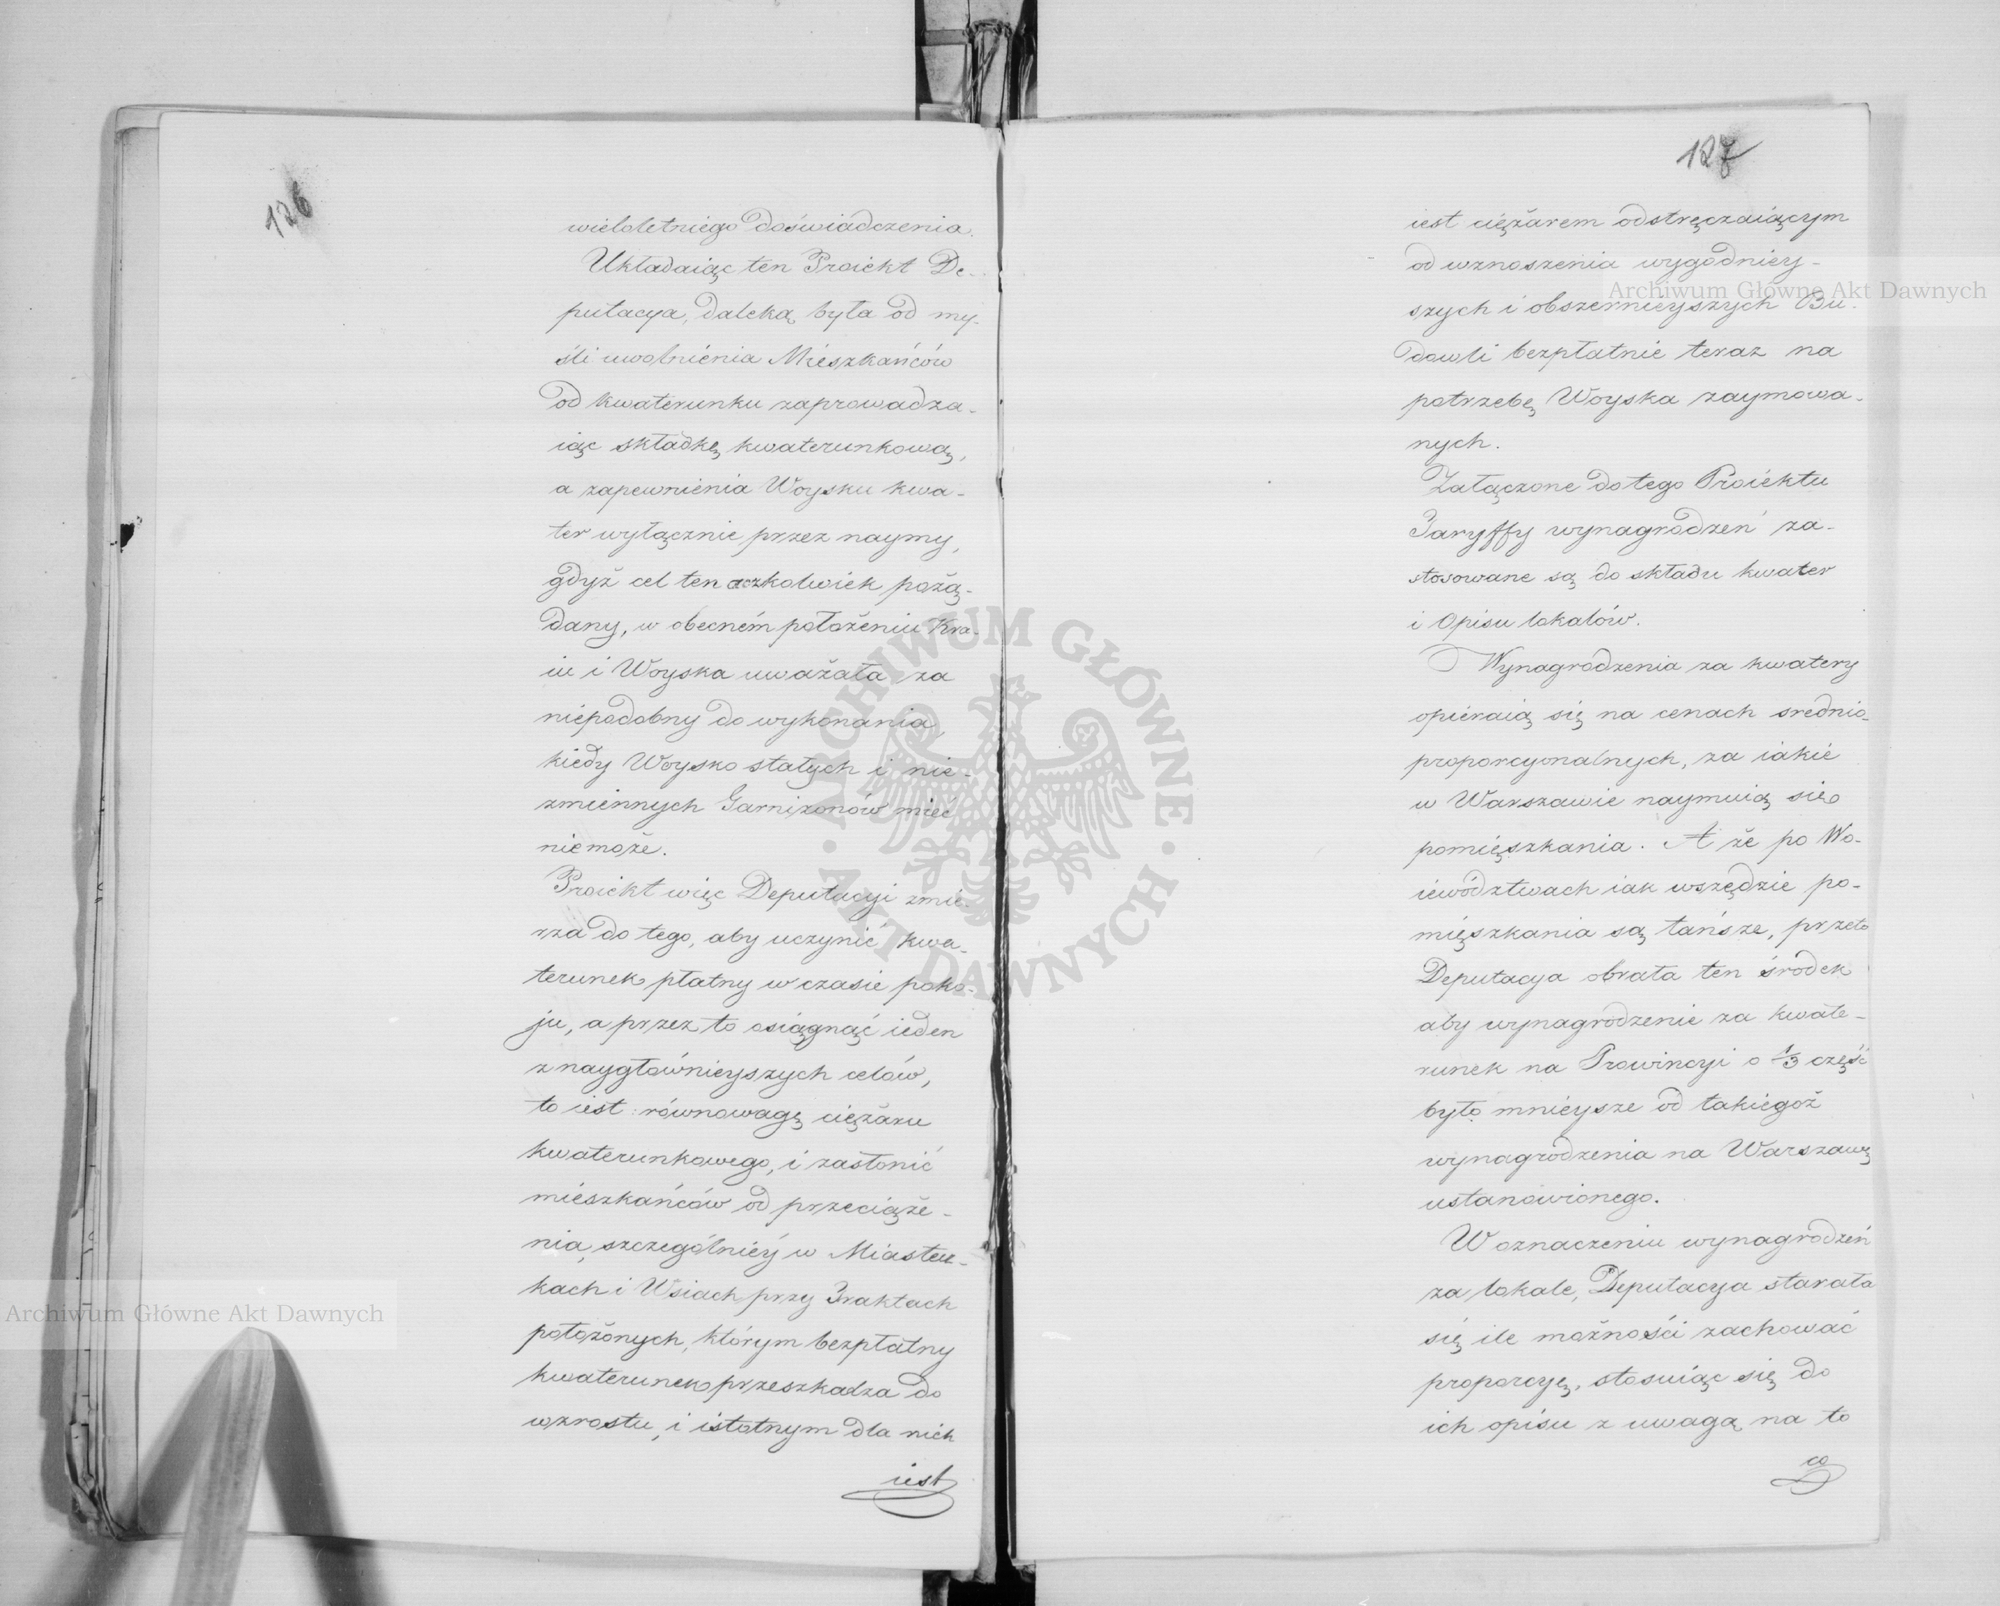 126
wieloletniego doświadczenia.
Układaiąc ten Proiekt De-
putacya, daleką była od my-
śli uwolnienia Mieszkańców
od kwaterunku zaprowadza-
iąc składkę kwaterunkową,
a zapewnienia Woysku kwa-
ter wyłącznie przez naymy,
gdyż cel ten aczkolwiek pożą-
dany, w obecném położeniu Kra-
iu i Woyska uważała za
niepodobny do wykonania,
kiedy Woysko stałych i nie-
zmiennych Garnizonów mieć
nie może.
Proiekt więc Deputacyi zmie-
rza do tego, aby uczynić kwa-
terunek płatny w czasie poko-
ju, a przez to osiągnąć ieden
z naygłównieyszych celów,
to iest: równowagę ciężaru
kwaterunkowego, i zasłonić
mieszkańców od przeciąże-
nia, szczególniéy w Miastecz-
kach i Wsiach przy Traktach
położonych, którym bezpłatny
kwaterunek przeszkadza do
wzrostu, i istotnym dla nich
iest
127
iest ciężarem odstręczaiącym
od wznoszenia wygodniey-
szych i obszernieyszych Bu-
dowli bezpłatnie teraz na
potrzebę Woyska zaymowa-
nych.
Załączone do tego Proiektu
Taryffy wynagrodzeń za-
stosowane są do składu kwater
i Opisu lokalów.
Wynagrodzenia za kwatery
opieraią się na cenach srednio-
proporcyonalnych, za iakie
w Warszawie naymuią się
pomięszkania. A że po Wo-
iewództwach iak wszędzie po-
mięszkania są tańsze, przeto
Deputacya obrała ten środek
aby wynagrodzenie za kwate-
runek na Prowincyi o 1/3 część
było mnieysze od takiegoż
wynagrodzenia na Warszawę
ustanowionego.
W oznaczeniu wynagrodzeń
za lokale, Deputacya starała
się ile możności zachować
proporcyę, stosuiąc się do
ich opisu z uwagą na to
co
Archiwum Główne Akt Dawnych
Archiwum Główne Akt Dawnych
ARCHIWUM GŁÓWNE · AKT DAWNYCH ·